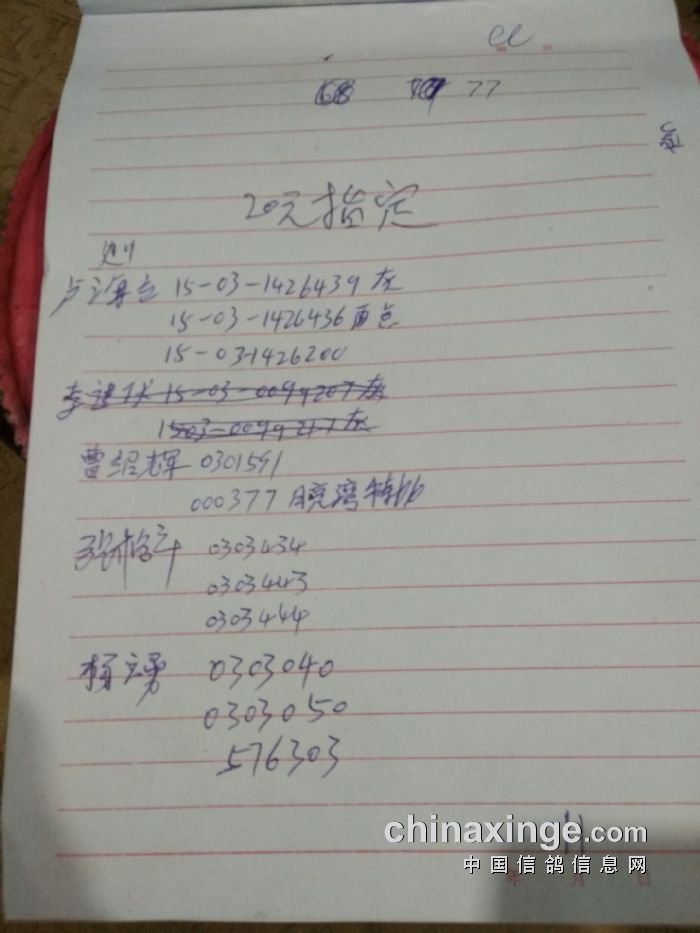 77
20元指定
15-03-1426439灰
15-03-1426436雨点
15-03-1426200
15-03-0099207灰
1503-0099217灰
曹绍辉 0301591
000377
0303434
0303443
0303444
杨文勇 0303040
0303050
576303
chinaxinge.com
中国信鸽信息网
年 月 日